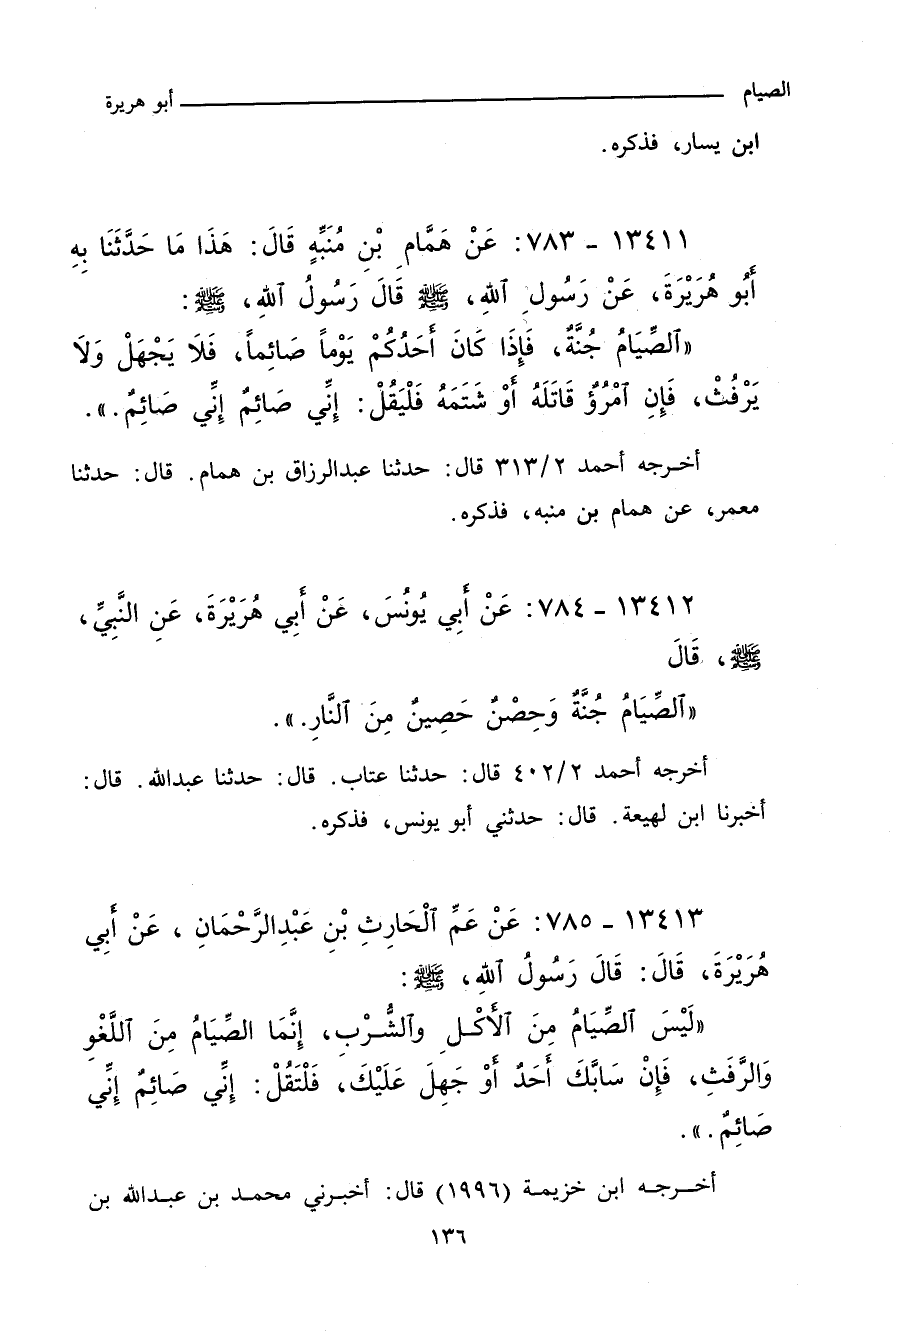 الصيام أبو هريرة
ابن يسار، فذكره.
١٣٤١١ - ٧٨٣: عَنْ هَمَّامِ بْنِ مُنَبِّهٍ قَالَ: هَذَا مَا حَدَّثَنَا بِهِ
أَبُو هُرَيْرَةَ، عَنْ رَسُولِ ٱللهِ، ﷺ قَالَ رَسُولُ ٱللهِ، ﷺ:
«ٱلصِّيَامُ جُنَّةٌ، فَإِذَا كَانَ أَحَدُكُمْ يَوْماً صَائِماً، فَلَا يَجْهَلْ وَلَا
يَرْفُثْ، فَإِنِ ٱمْرُؤٌ قَاتَلَهُ أَوْ شَتَمَهُ فَلْيَقُلْ: إِنِّي صَائِمٌ إِنِّي صَائِمٌ.».
أخرجه أحمد ٣١٣/٢ قال: حدثنا عبدالرزاق بن همام. قال: حدثنا
معمر، عن همام بن منبه، فذكره.
١٣٤١٢ - ٧٨٤: عَنْ أَبِي يُونُسَ، عَنْ أَبِي هُرَيْرَةَ، عَنِ النَّبِيِّ،
ﷺ، قَالَ
«ٱلصِّيَامُ جُنَّةٌ وَحِصْنٌ حَصِينٌ مِنَ ٱلنَّارِ.».
أخرجه أحمد ٤٠٢/٢ قال: حدثنا عتاب. قال: حدثنا عبدالله. قال:
أخبرنا ابن لهيعة. قال: حدثني أبو يونس، فذكره.
١٣٤١٣ - ٧٨٥: عَنْ عَمِّ ٱلْحَارِثِ بْنِ عَبْدِالرَّحْمَانِ، عَنْ أَبِي
هُرَيْرَةَ، قَالَ: قَالَ رَسُولُ ٱللهِ، ﷺ:
«لَيْسَ ٱلصِّيَامُ مِنَ ٱلْأَكْلِ وٱلشُّرْبِ، إِنَّمَا الصِّيَامُ مِنَ ٱللَّغْوِ
وَالرَّفَثِ، فَإِنْ سَابَّكَ أَحَدٌ أَوْ جَهِلَ عَلَيْكَ، فَلْتَقُلْ: إِنِّي صَائِمٌ إِنِّي
صَائِمٌ.».
أخرجه ابن خزيمة (١٩٩٦) قال: أخبرني محمد بن عبدالله بن
١٣٦